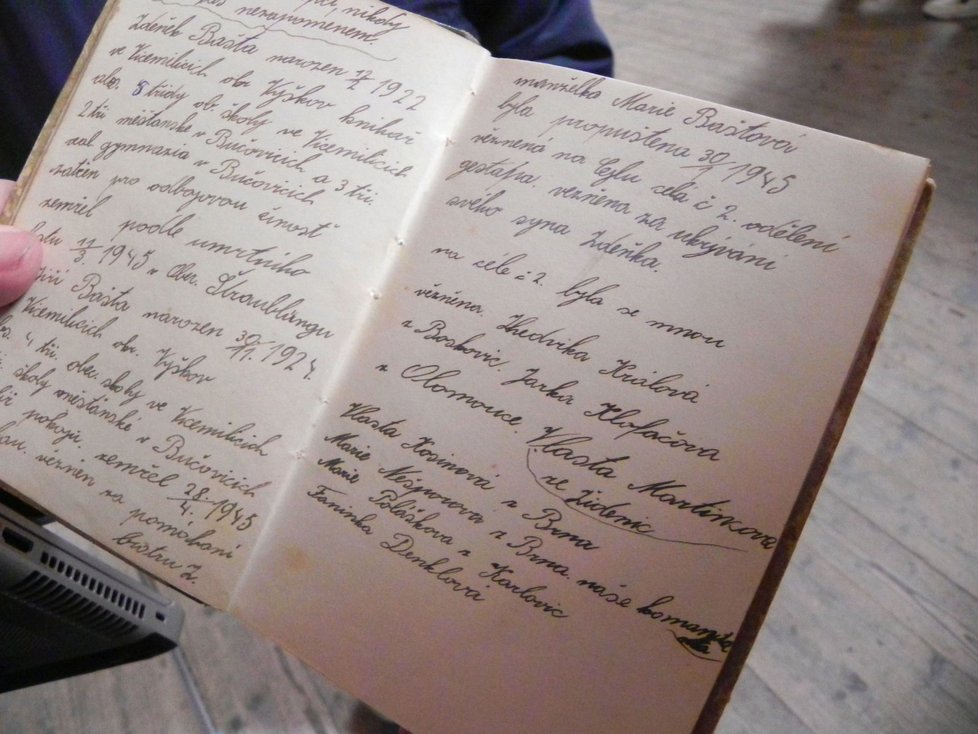 při nikoly
nezapomenem.
Zdeněk Bašta narozen 17/2 1922
ve Vícemilicích okr. Vyškov knihař
abs. 5 třídy ob. školy ve Vícemilicích
2 tři. měšťanské v Bučovicích a 3 tři.
real gymnazia v Bučovicích
zatčen pro odbojovou činost
zemřel podle umrtního
listu 11/3 1945 v Ober. Straublingu
Jiří Bašta narozen 30/11. 1924.
Vícemilicích okr. Vyškov
abs. 4 tři. obec. školy ve Vícemilicích
školy měšťanské v Bučovicích
pokoji, zemřel 28/4. 1945
vězněn za pomáhaní
bratru Z.
manželka Marie Baštová
byla propuštěna 30/1 1945
vězněná na Cejlu cela č 2. oddělení
gestapa. vězněna za ukývání
svého syna Zdeňka.
na cele č 2. byla se mnou
vězněna. Hedvika Králová
z Boskovic, Jarka Klofáčova
z Olomouce. Vlasta Martinková
ze Židenic
Vlasta Hosinová z Brna
Marie Nesporova z Brna. naše komando
Marie Polášková z Karlovic
Faninka Denklová